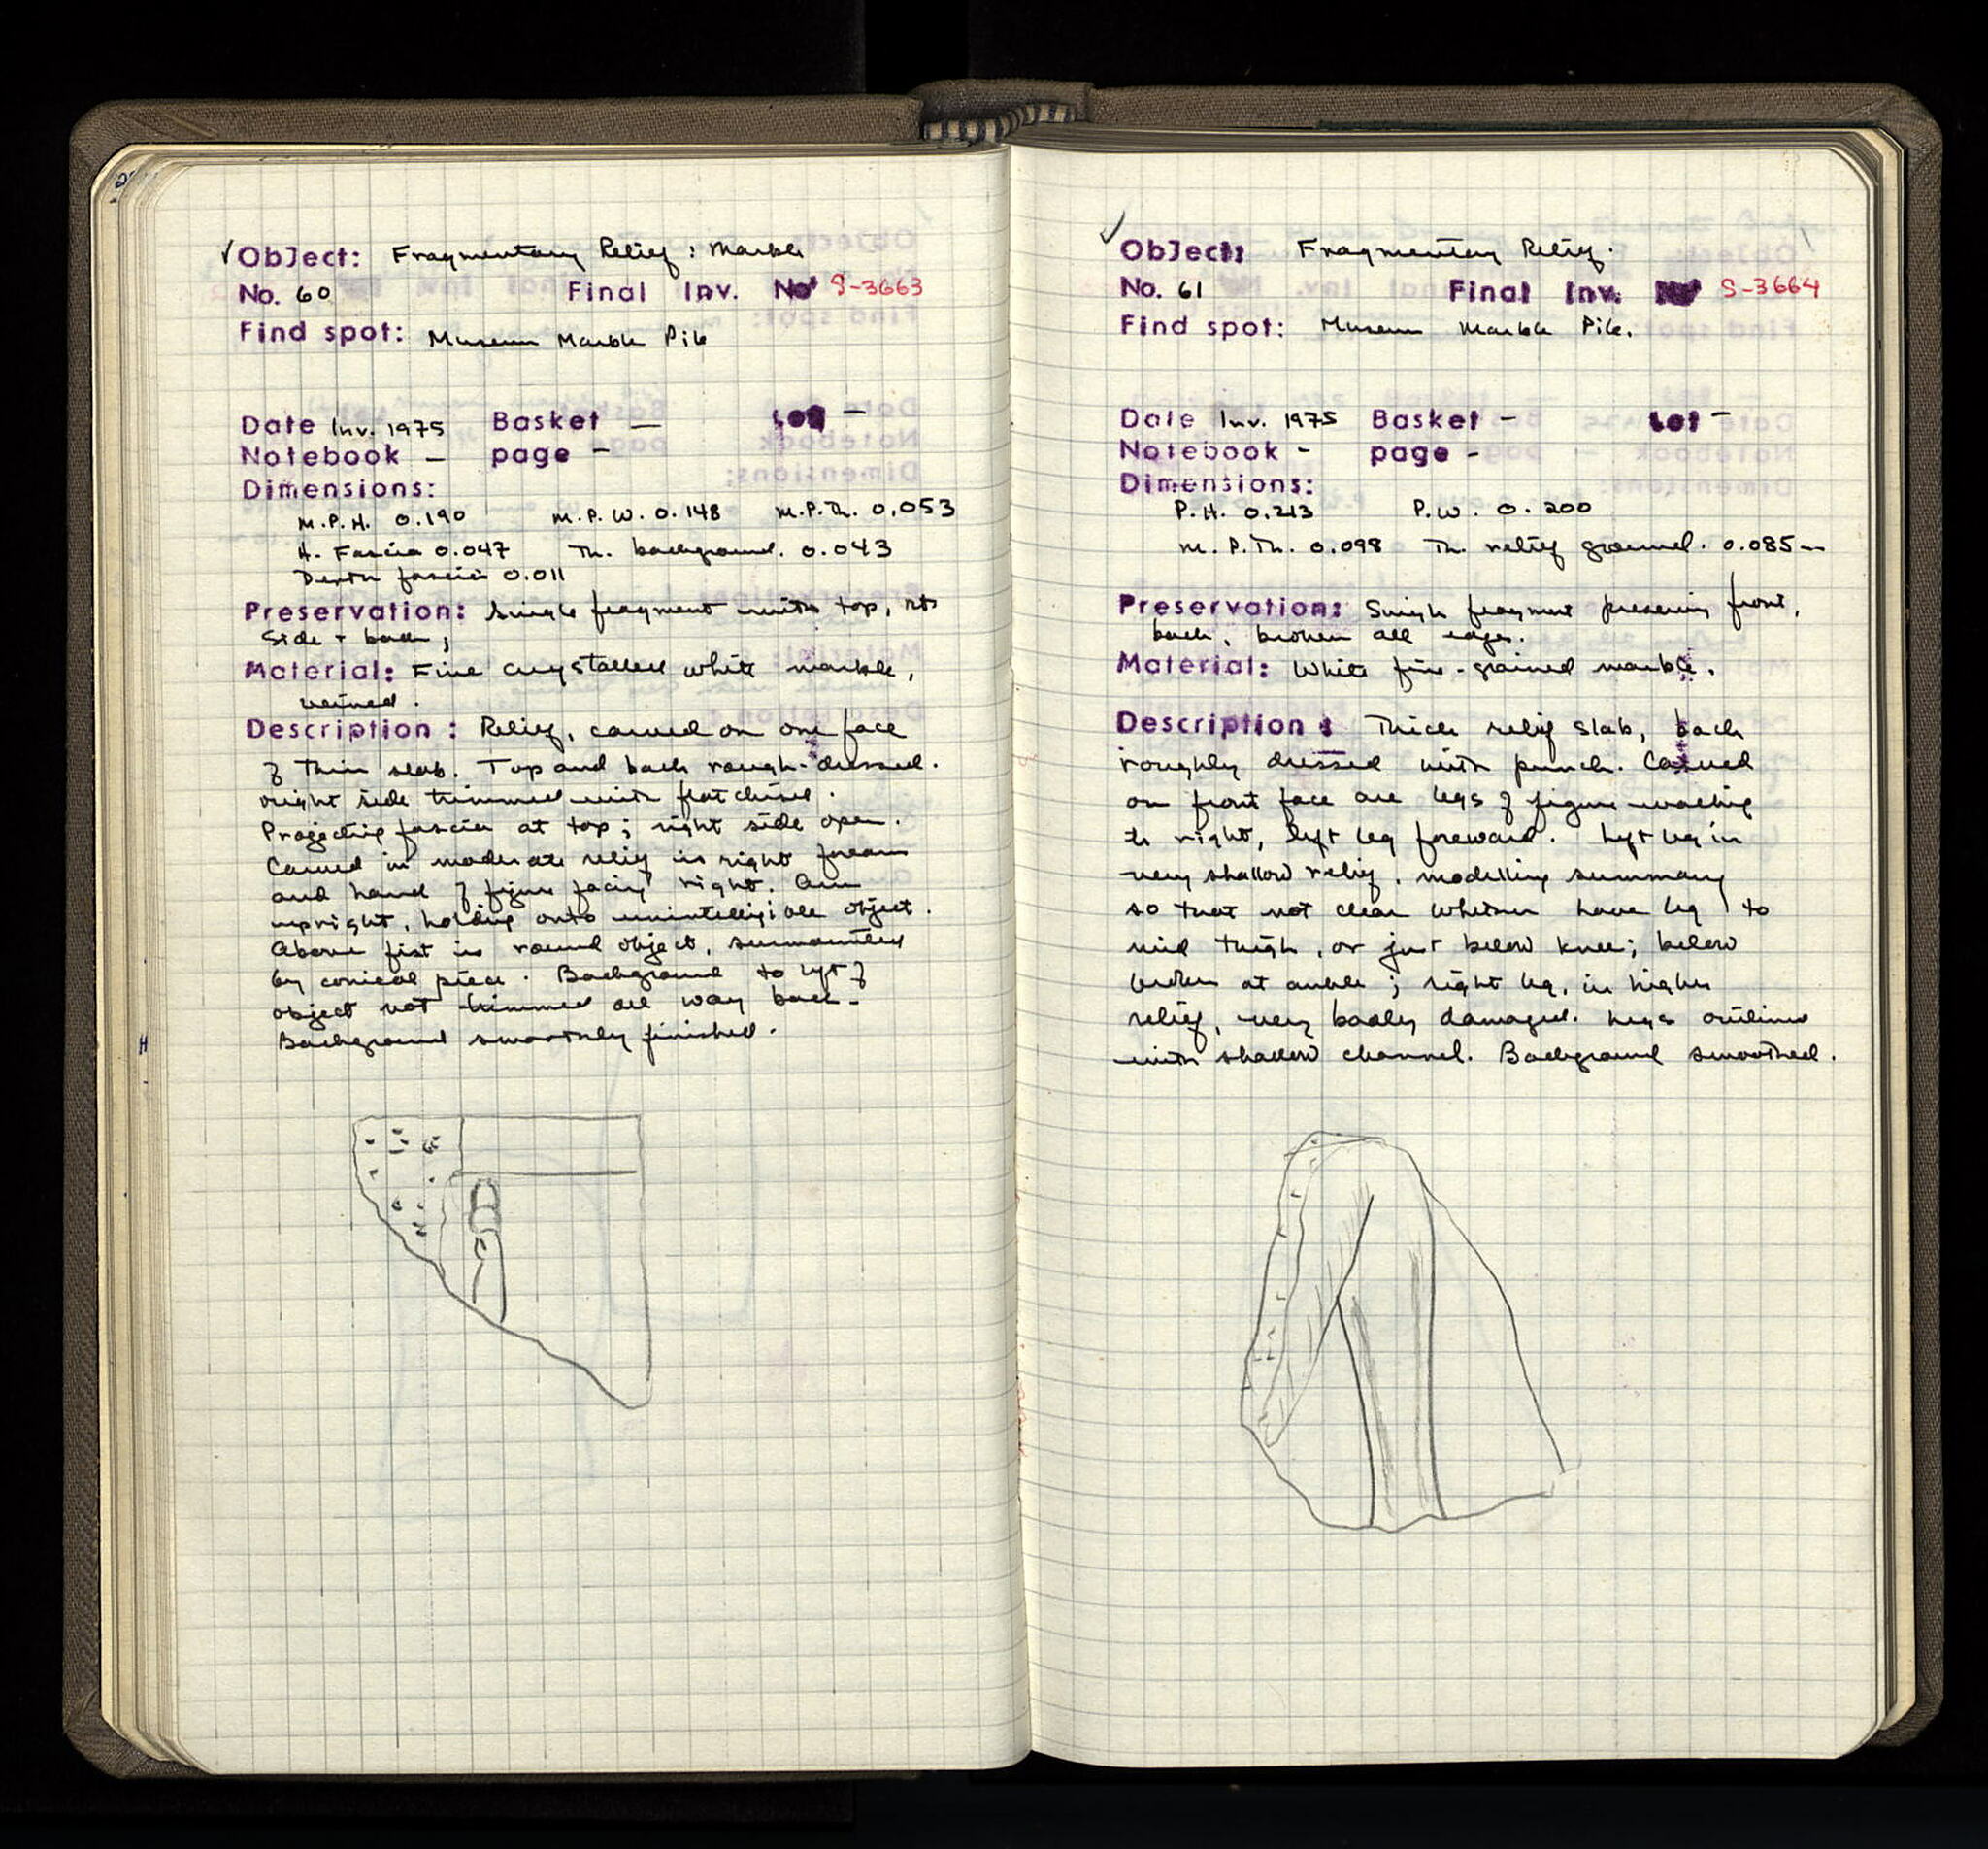 ✓ Object: Fragmentary Relief : Marble
No. 60 Final Inv. No S-3663
Find spot: Museum Marble Pile
Date Inv. 1975 Basket — Lot —
Notebook — page -
Dimensions:
M.P.H. 0.190 M.P.W. 0.148 M.P.Th. 0.053
H. Fascia 0.047 Th. background. 0.043
Depth fascia 0.011
Preservation: Single fragment with top, rt
side + back;
Material: Fine crystalled white marble,
veined.
Description: Relief, carved on one face
of thin slab. Top and back rough-dressed.
right side trimmed with flat chisel.
Projecting fascia at top; right side open.
Carved in moderate relief is right forearm
and hand of figure facing right. Arm
upright, holding onto unintelligible object.
Above fist is round object, surmounted
by conical piece. Background to left of
object not trimmed all way back.
Background smoothly finished.
✓ Object: Fragmentary Relief.
No. 61 Final Inv. No S-3664
Find spot: Museum Marble Pile.
Date Inv. 1975 Basket - Lot -
Notebook - page -
Dimensions:
P.H. 0.213 P.W. 0.200
M.P.Th. 0.098 Th. relief ground. 0.085—
Preservation: Single fragment preserving front,
back, broken all edges.
Material: White fine-grained marble.
Description: Thick relief slab, back
roughly dressed with punch. Carved
on front face are legs of figure walking
to right, left leg foreward. Left leg in
very shallow relief, modelling summary
so that not clear whether have leg to
mid thigh, or just below knee; below
broken at ankle; right leg, in higher
relief, very badly damaged. Legs outlined
with shallow channel. Background smoothed.